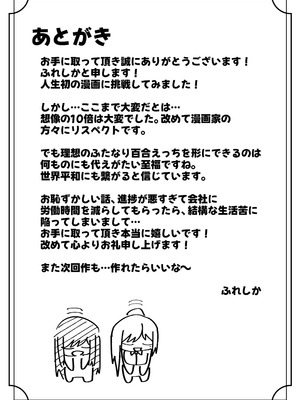 あとがき
お手に取って頂き誠にありがとうございます！
ふれしかと申します！
人生初の漫画に挑戦してみました！
しかし…ここまで大変だとは…
想像の10倍は大変でした。改めて漫画家の
方々にリスペクトです。
でも理想のふたなり百合えっちを形にできるのは
何ものにも代えがたい至福ですね。
世界平和にも繋がると信じています。
お恥ずかしい話、進捗が悪すぎて会社に
労働時間を減らしてもらったら、結構な生活苦に
陥ってしまいまして…
お手に取って頂き本当に嬉しいです！
改めて心よりお礼申し上げます！
また次回作も…作れたらいいな～
ふれしか